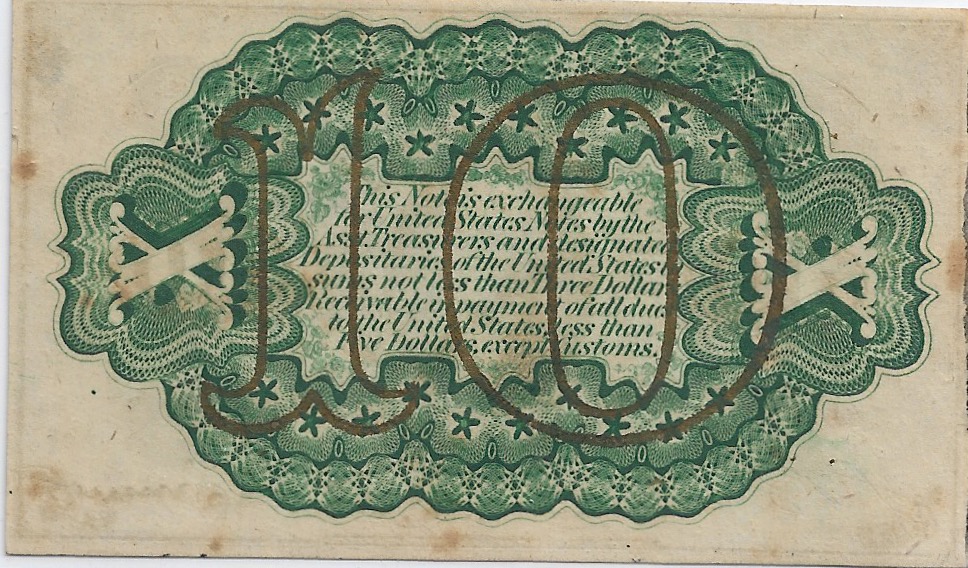 10
X X
This Note is exchangeable
for United States Notes by the
Asst. Treasurers and designated
Depositaries of the United States
sums not less than Three Dollars
Receivable in payment of all dues
to the United States, less than
Five Dollars, except Customs.